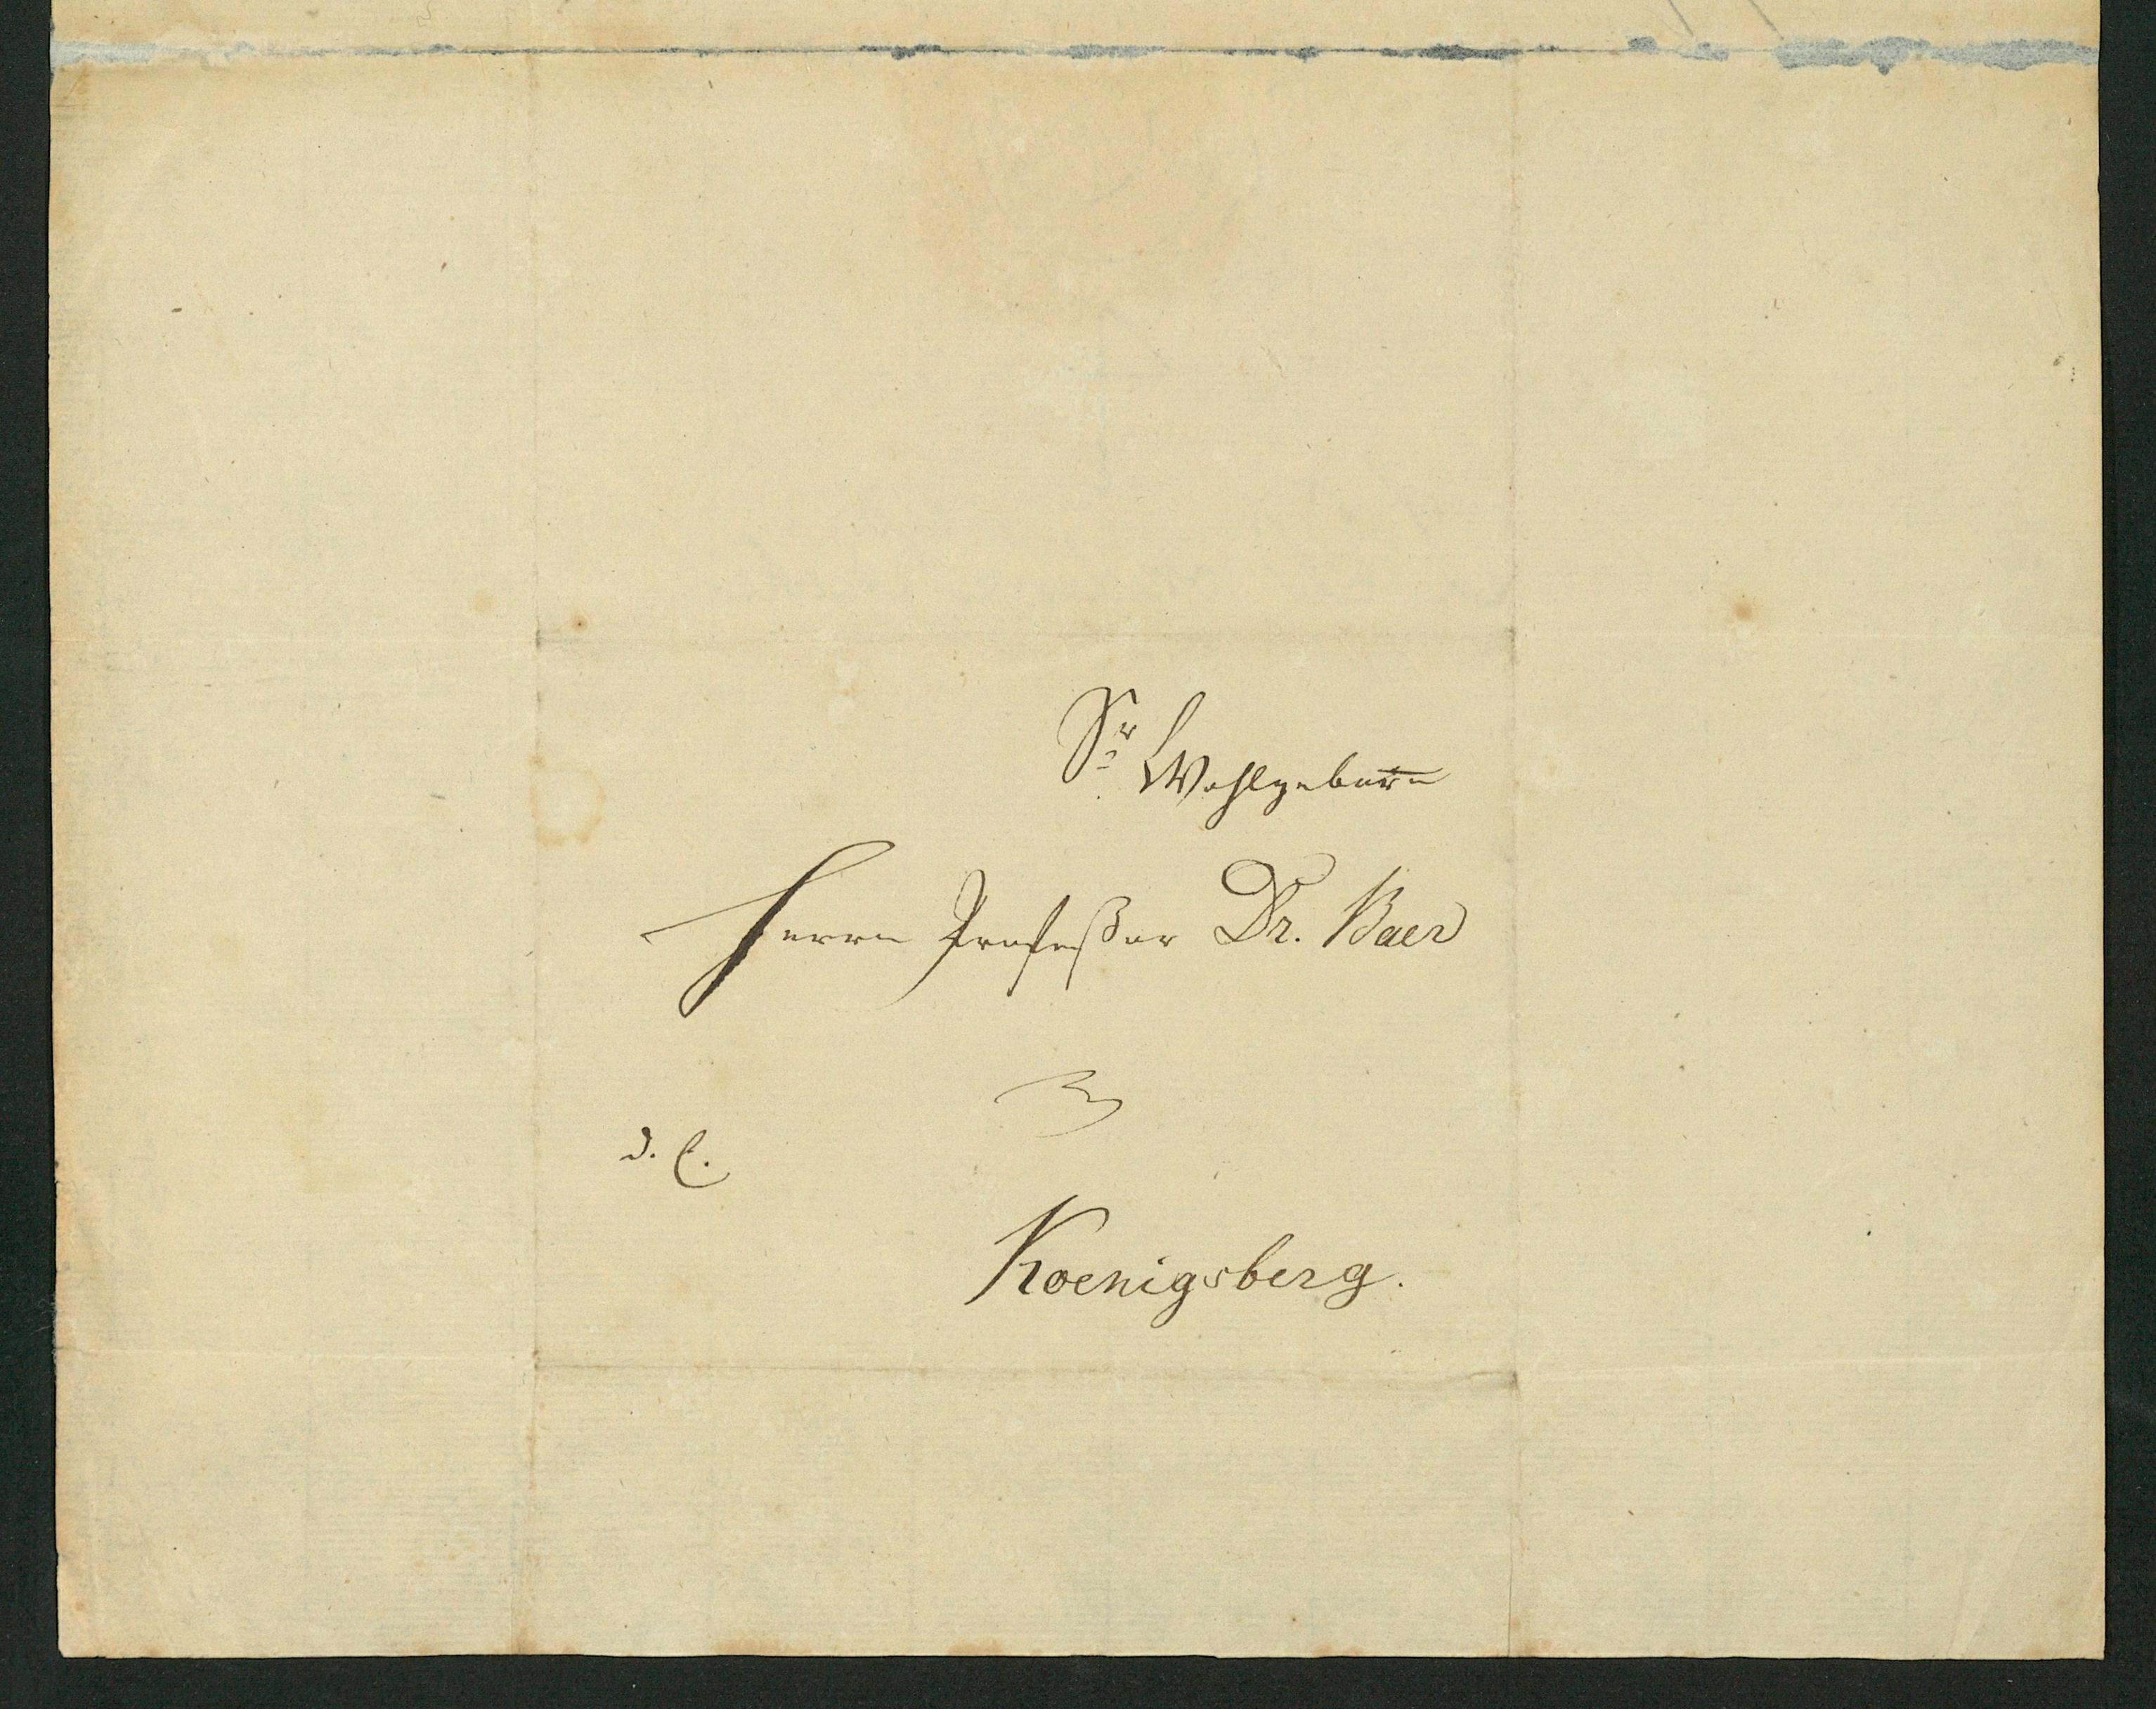 Sr Wohlgeborn
Herrn Profeßor Dr. Baer
d. E.
Koenigsberg.